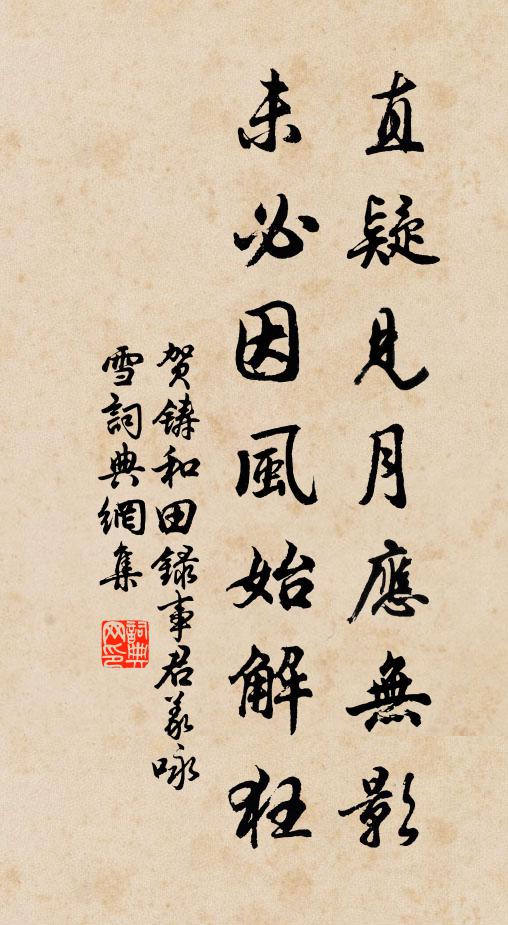 直疑見月應無影
未必因風始解狂
賀鑄和田錄事君義咏
雪詞典網集
詞典網印